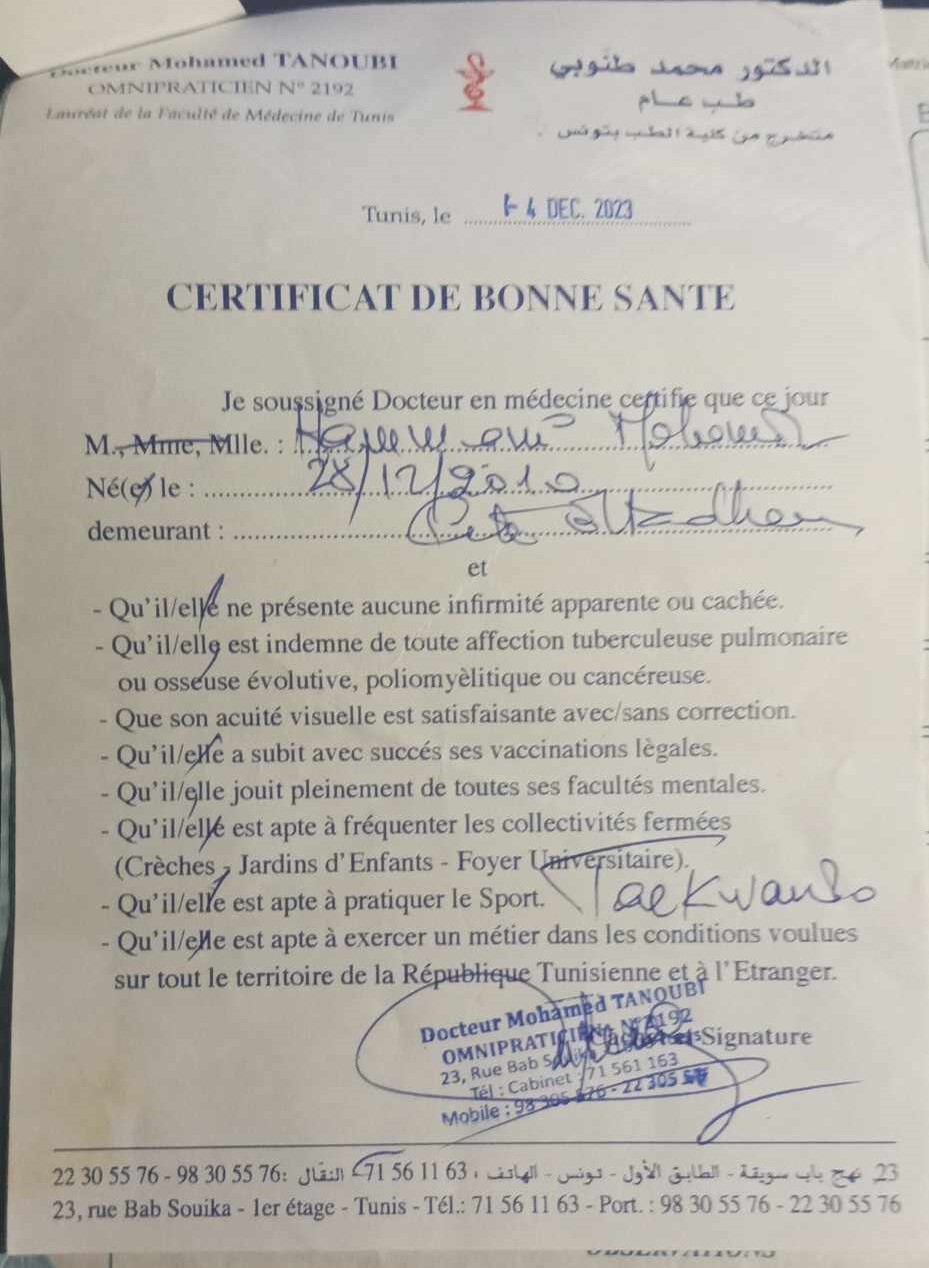 Docteur Mohamed TANOUBI
OMNIPRATICIEN N° 2192
Lauréat de la Faculté de Médecine de Tunis
الدكتور محمد طنوبي
طب عام
متخرج من كلية الطب بتونس
Tunis, le 4 DEC. 2023
CERTIFICAT DE BONNE SANTE
Je soussigné Docteur en médecine certifie que ce jour
M., Mme, Mlle. : Hammami Mohamed
Né(e) le : 28/12/2010
demeurant :
et
- Qu'il/elle ne présente aucune infirmité apparente ou cachée.
- Qu'il/elle est indemne de toute affection tuberculeuse pulmonaire
ou osseuse évolutive, poliomyèlitique ou cancéreuse.
- Que son acuité visuelle est satisfaisante avec/sans correction.
- Qu'il/elle a subit avec succés ses vaccinations lègales.
- Qu'il/elle jouit pleinement de toutes ses facultés mentales.
- Qu'il/elle est apte à fréquenter les collectivités fermées
(Crèches - Jardins d'Enfants - Foyer Universitaire).
- Qu'il/elle est apte à pratiquer le Sport. TaeKwando
- Qu'il/elle est apte à exercer un métier dans les conditions voulues
sur tout le territoire de la République Tunisienne et à l'Etranger.
Docteur Mohamed TANOUBI
OMNIPRATICIEN N° 2192
Cachet et Signature
23, Rue Bab Souika
Tél : Cabinet : 71 561 163
Mobile : 98 305 576 - 22 305 576
23 نهج باب سويقة - الطابق الأول - تونس - الهاتف : 71 56 11 63 النقال : 98 30 55 76 - 22 30 55 76
23, rue Bab Souika - 1er étage - Tunis - Tél.: 71 56 11 63 - Port. : 98 30 55 76 - 22 30 55 76
OBSERVATIONS